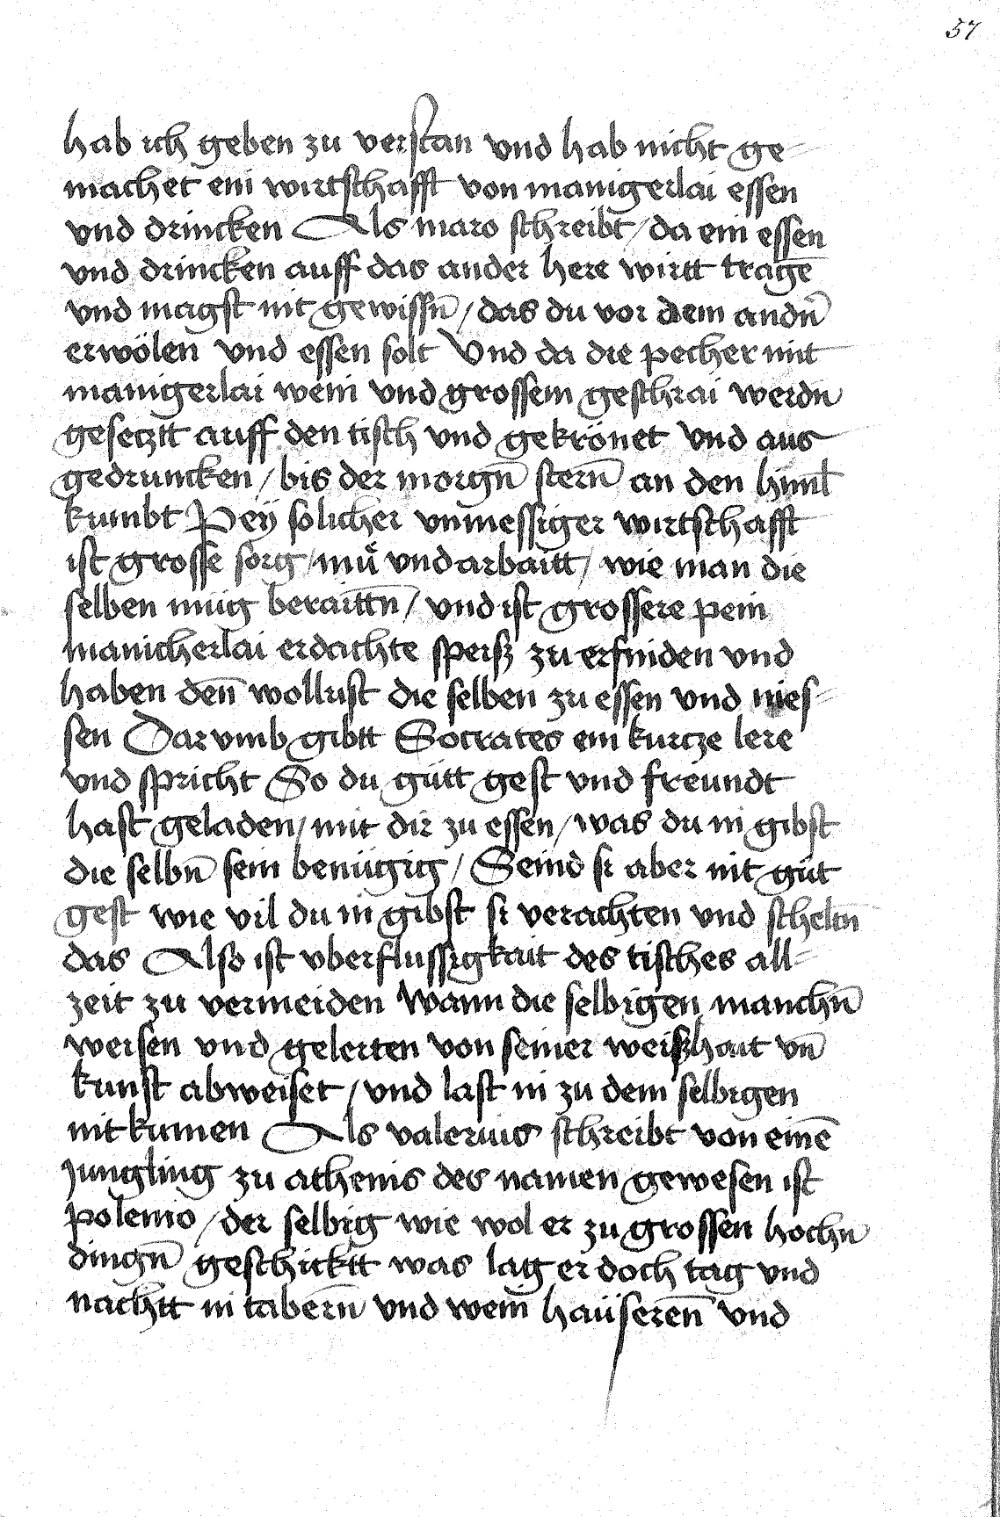 57
hab ich geben zu verstan vnd hab nicht ge-
machet ein wirtschafft von manigerlai essen
vnd drincken Als maro schreibt / da ein essen
vnd drincken auff das ander here wirtt tragē
vnd magst nit gewissn̄ / das du vor dem andn̄
erwölen vnd essen solt Vnd da die pecher mit
manigerlai wein vnd grossem geschrai werdn
gesetztt auff den tisch vnd gekrönet vnd aus
gedruncken / bis der morgn̄ stern̄ an den himl
kumbt Peÿ solicher vnmessiger wirtschafft
ist grosse sorg / mů vnd arbaitt / wie man die
selben müg beraittn̄ / vnd ist grossere pein
manicherlai erdachte speisz zu erfinden vnd
haben den̄ wollust die selben zu essen vnd nies-
sen Darvmb gibtt Socrates ein kurcze lere
vnd spricht So du gütt gest vnd freundt
hast geladen / mit dir zu essen / was du in gibst
die selbn̄ sein benügig / Seind si aber nit güt
gest wie vil du in gibst si verachten vnd scheltn̄
das Also ist vberflussigkait des tisches all-
zeit zu vermeiden Wann die selbigen manchn̄
weisen vnd gelerten von seiner weiszhait vn̄
kunst abweiset / vnd last in zu dem selbigen
nit kumen Als valerius schreibt von einē
Jungling zu athenis des namen gewesen ist
polemo / der selbig wie wol er zu grossen hochn
dingn̄ geschicktt was lag er doch tag vnd
nachtt in tabern̄ vnd wein haüseren̄ vnd